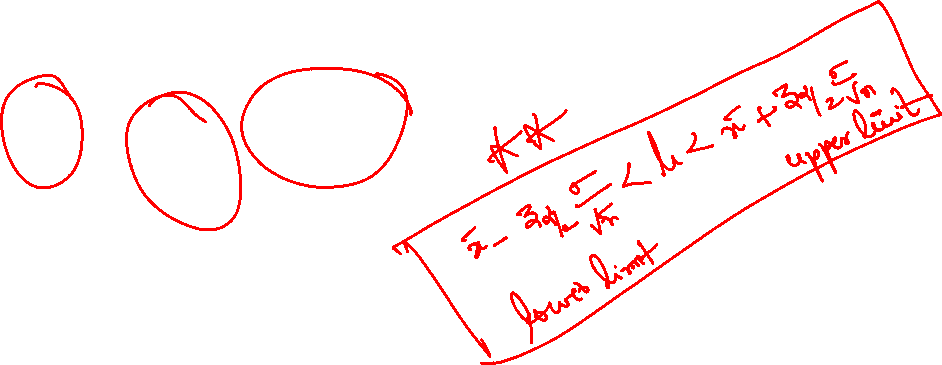 x̄ - z_{α/2} σ/√n < μ < x̄ + z_{α/2} σ/√n
lower limit
upper limit